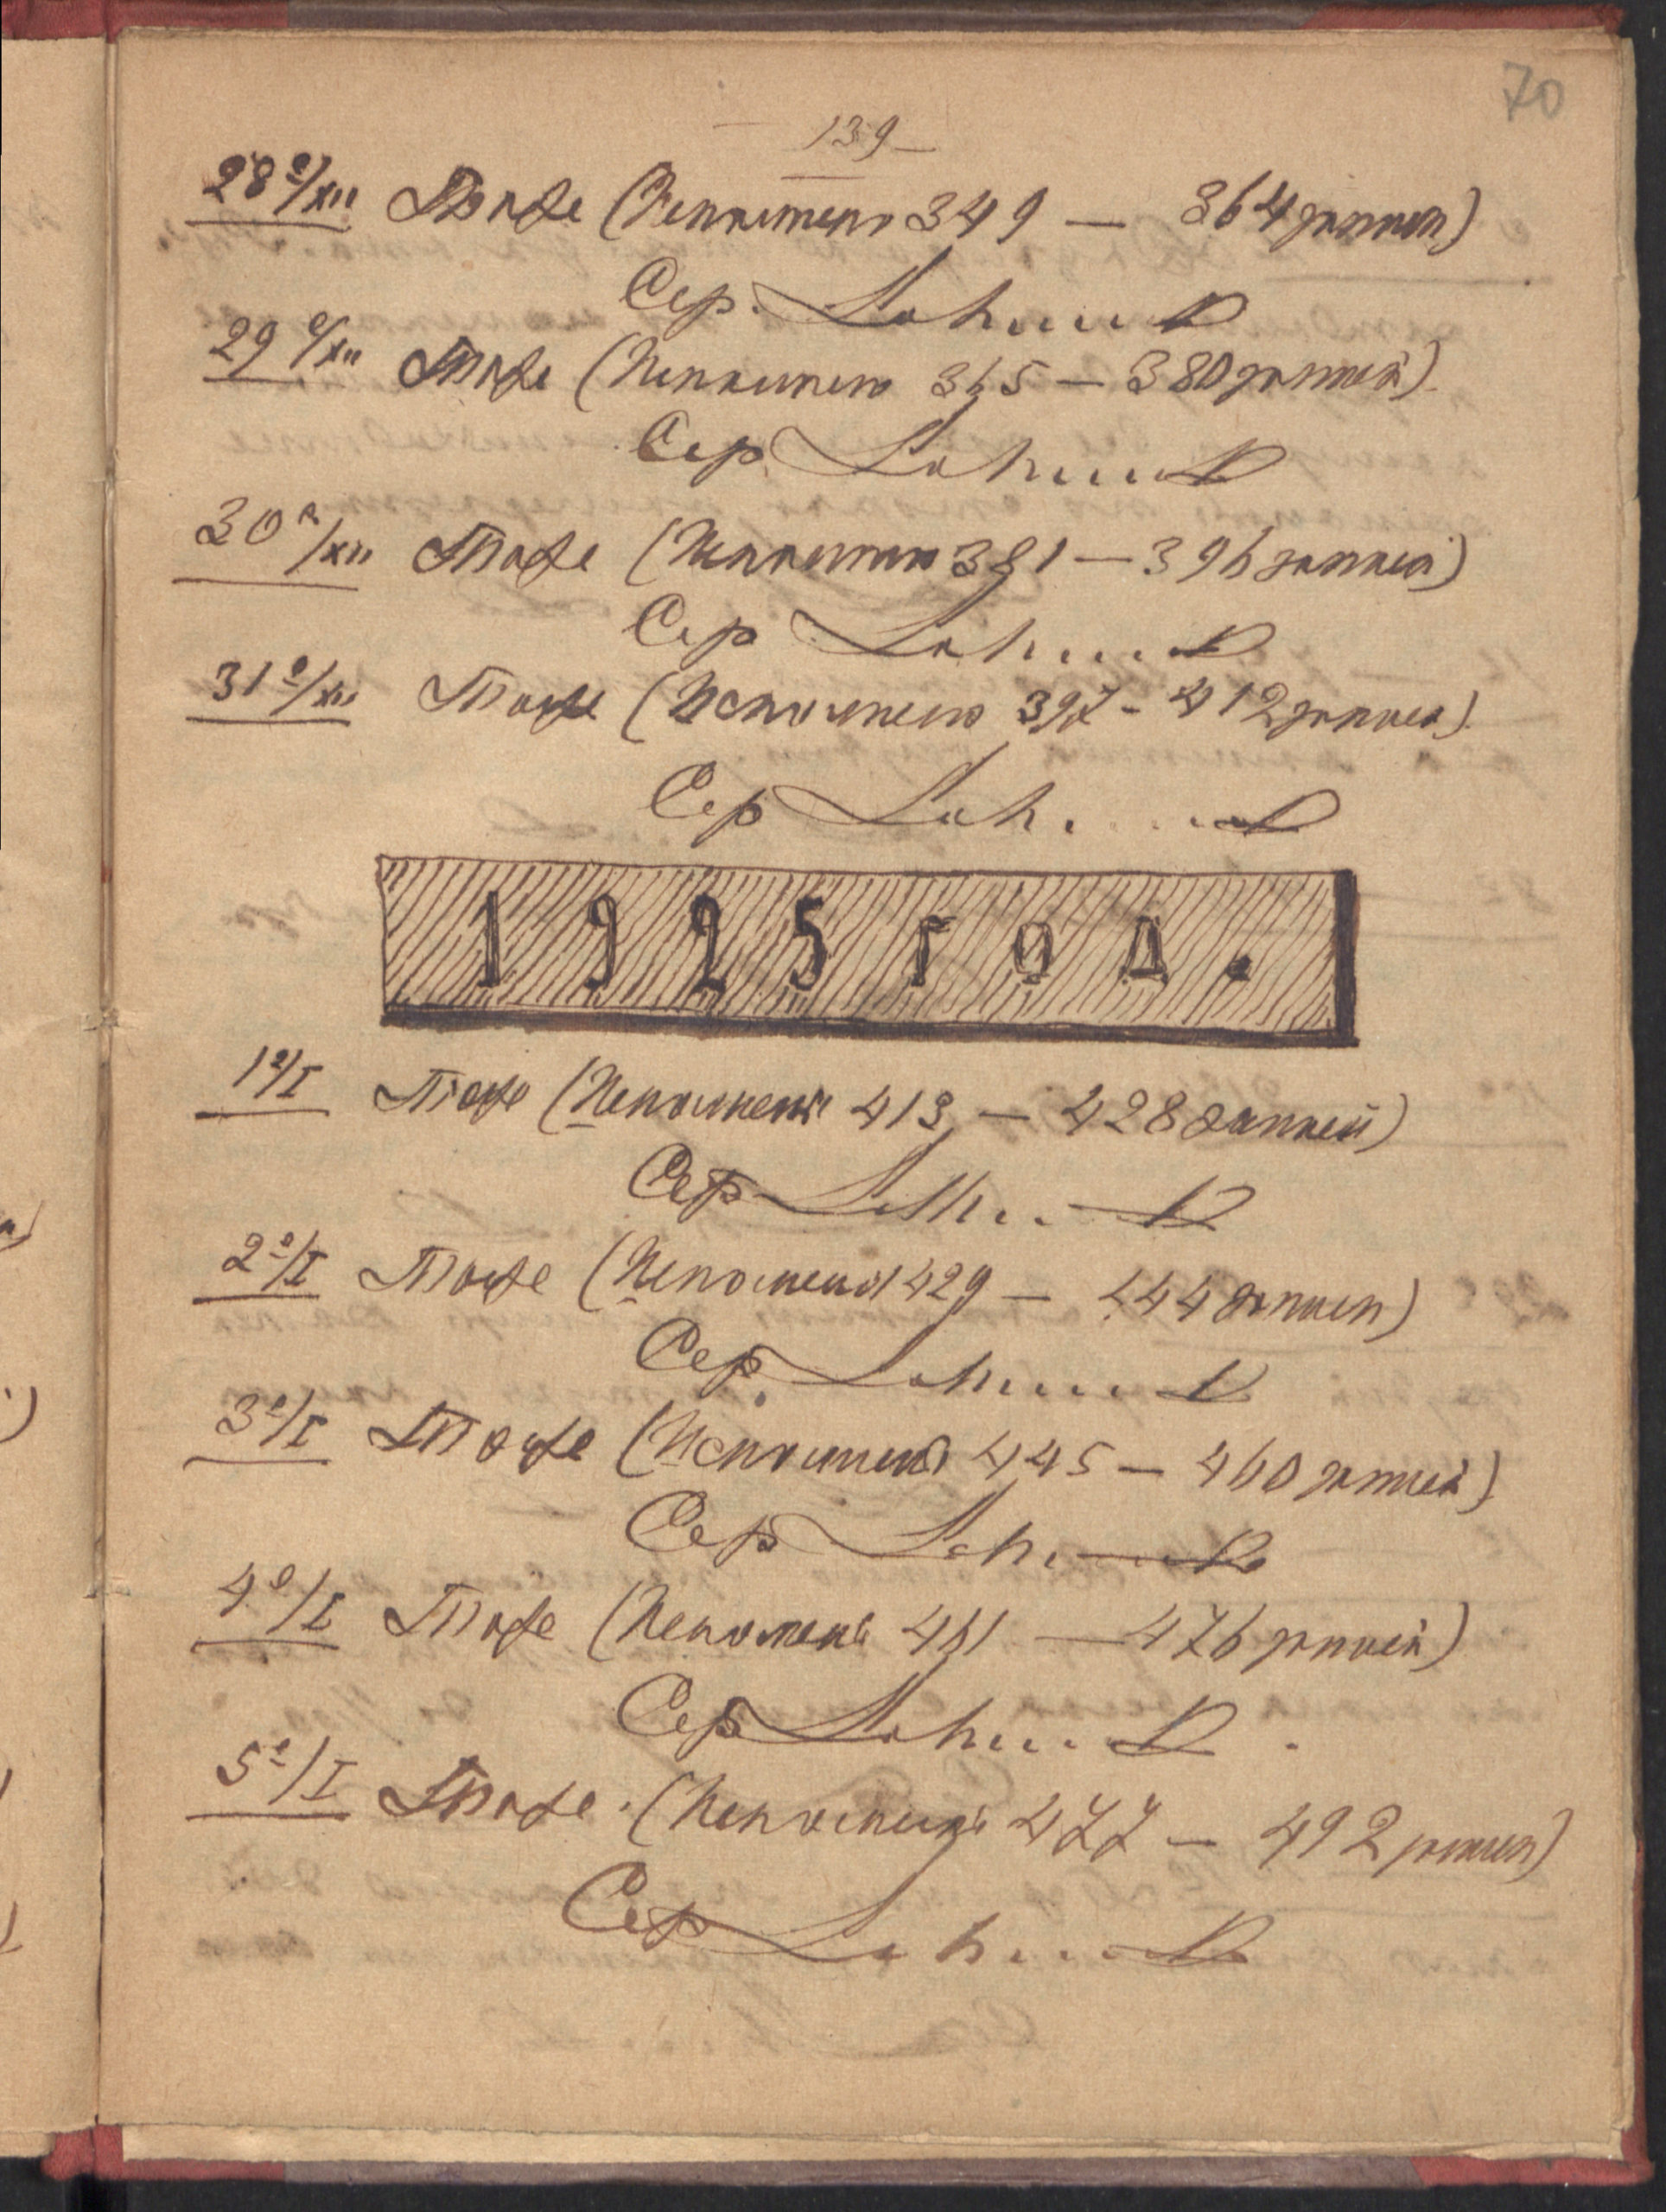 70
— 139 —
28 2/XII Тоже (Исполнено 349 — 364 записей)
Сер.
29 2/XII Тоже (Исполнено 365 — 380 записей).
Сер.
30 2/XII Тоже (Исполнено 381 — 396 записей)
Сер
31 2/XII Тоже (Исполнено 397 - 412 записей).
Сер
1925 год.
1 2/I Тоже (Исполнено 413 — 428 записей)
Сер
2 2/I Тоже (Исполнено 429 — 444 записей)
Сер.
3 2/I Тоже (Исполнено 445 — 460 записей)
Сер
4 2/I Тоже (Исполнено 461 — 476 записей)
Сер
5 2/I Тоже. (Исполнено 477 — 492 записей)
Сер